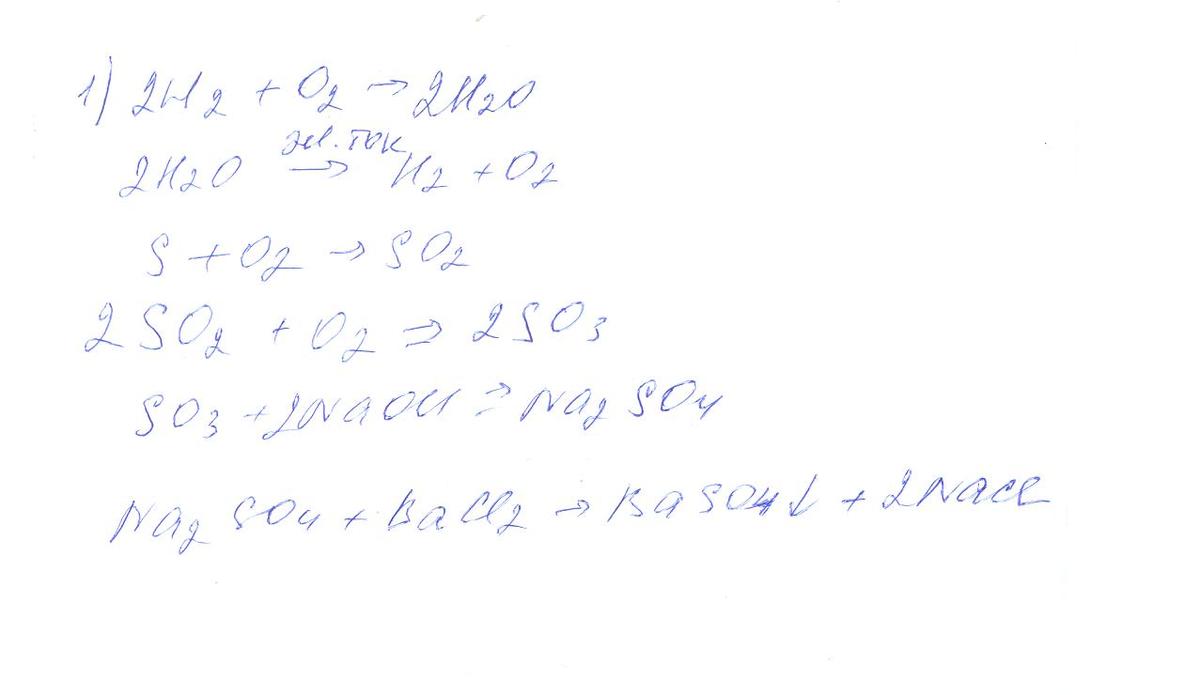 1) 2H2 + O2 → 2H2O
эл. ток
2H2O → H2 + O2
S + O2 → SO2
2SO2 + O2 → 2SO3
SO3 + 2NaOH → Na2SO4
Na2SO4 + BaCl2 → BaSO4↓ + 2NaCl